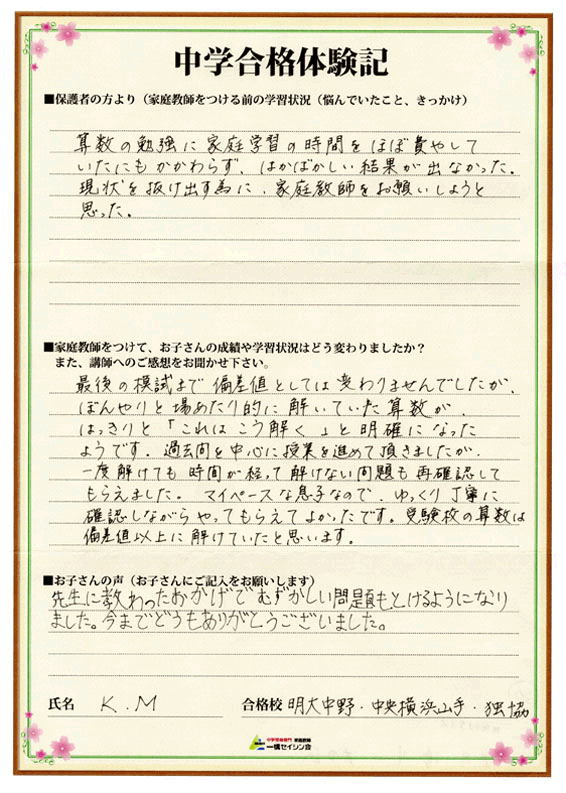 中学合格体験記
■保護者の方より（家庭教師をつける前の学習状況（悩んでいたこと、きっかけ）
算数の勉強に家庭学習の時間をほぼ費やして
いたにもかかわらず、はかばかしい結果が出なかった。
現状を抜け出す為に、家庭教師をお願いしようと
思った。
■家庭教師をつけて、お子さんの成績や学習状況はどう変わりましたか？
また、講師へのご感想をお聞かせ下さい。
最後の模試まで偏差値としては変わりませんでしたが、
ぼんやりと場あたり的に解いていた算数が、
はっきりと「これはこう解く」と明確になった
ようです。過去問を中心に授業を進めて頂きましたが、
一度解けても時間が経って解けない問題も再確認して
もらえました。マイペースな息子なので、ゆっくり丁寧に
確認しながらやってもらえてよかったです。受験校の算数は
偏差値以上に解けていたと思います。
■お子さんの声（お子さんにご記入をお願いします）
先生に教わったおかげでむずかしい問題もとけるようになり
ました。今までどうもありがとうございました。
氏名 K.M 合格校 明大中野・中央横浜山手・独協
中学受験専門 家庭教師
一橋セイシン会